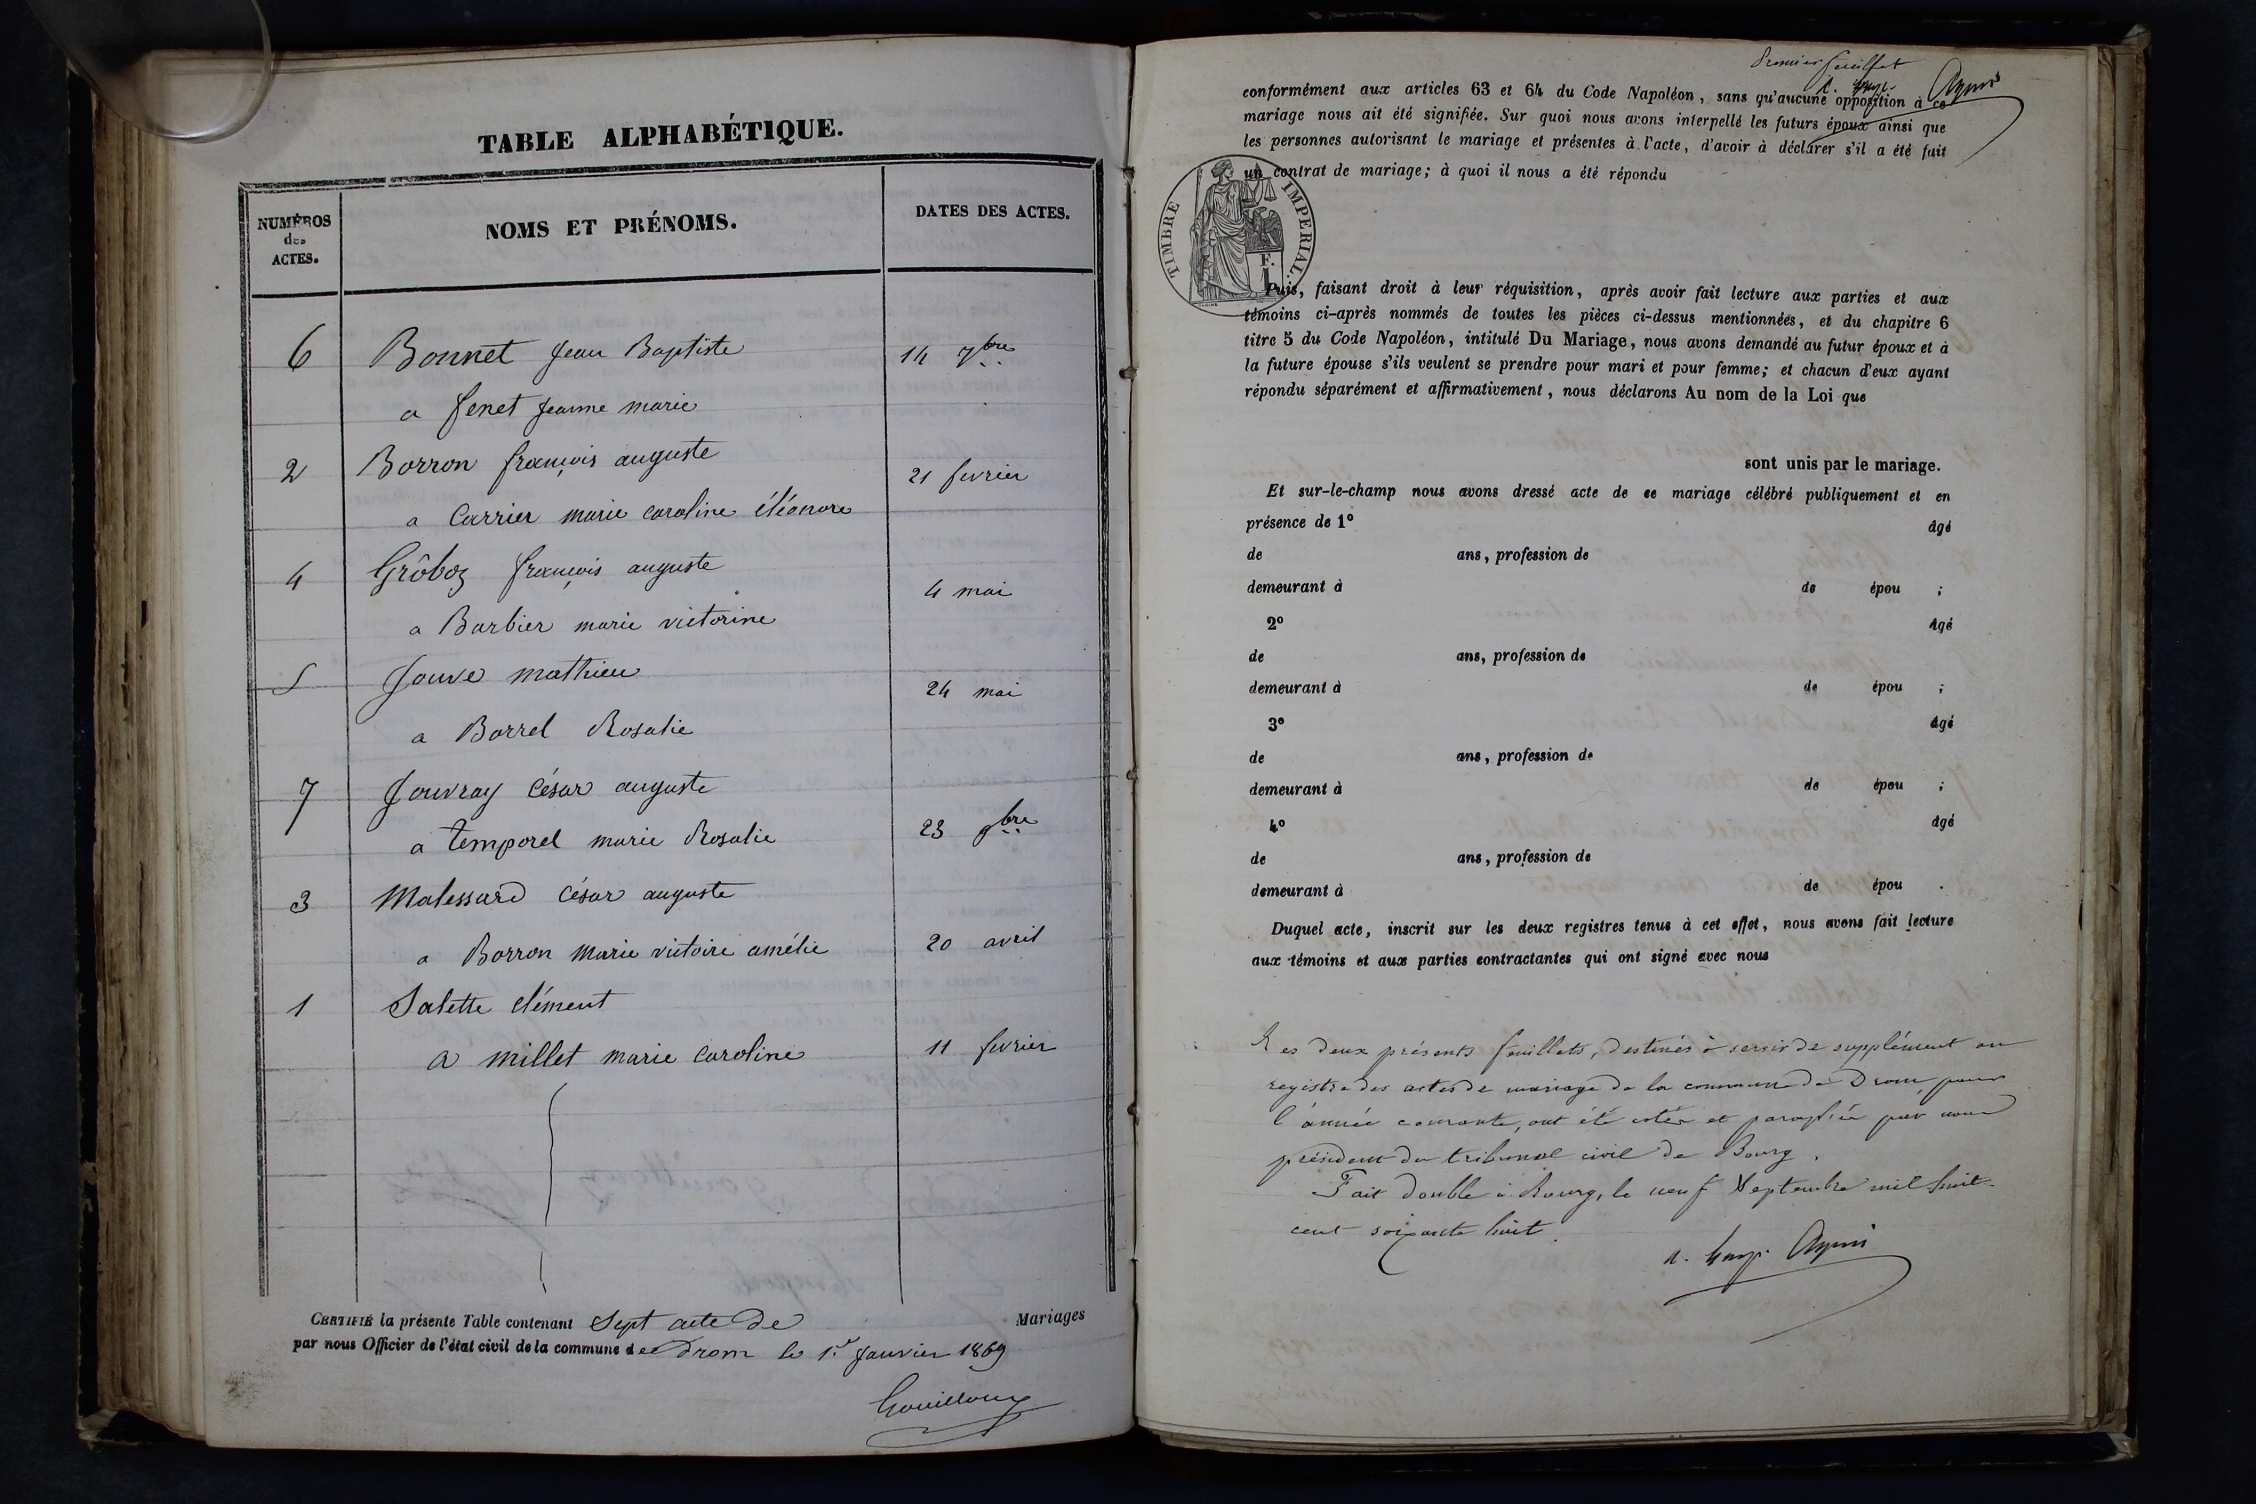 TABLE ALPHABÉTIQUE.
NUMÉROS
des
ACTES.
NOMS ET PRÉNOMS.
DATES DES ACTES.
6 Bonnet Jean Baptiste 14 7bre
a Jenet Jeanne marie
2 Borron françois auguste 21 fevrier
a Carrier marie caroline éléonore
4 Grôboz françois auguste 4 mai
a Barbier marie victorine
5 Jouve mathieu 24 mai
a Borrel Rosalie
7 Jouvray César auguste
a temporel marie Rosalie 23 9bre
3 Malessard César auguste
a Borron Marie victoire amélie 20 avril
1 Salette clément
a millet marie caroline 11 fevrier
CERTIFIÉ la présente Table contenant Sept acte de Mariages
par nous Officier de l'état civil de la commune de Drom le 1er Janvier 1869
Gouilloux
Premier feuillet
conformément aux articles 63 et 64 du Code Napoléon, sans qu'aucune opposition à ce
mariage nous ait été signifiée. Sur quoi nous avons interpellé les futurs époux ainsi que
les personnes autorisant le mariage et présentes à l'acte, d'avoir à déclarer s'il a été fait
un contrat de mariage; à quoi il nous a été répondu
TIMBRE IMPERIAL.
1 F.
Puis, faisant droit à leur réquisition, après avoir fait lecture aux parties et aux
témoins ci-après nommés de toutes les pièces ci-dessus mentionnées, et du chapitre 6
titre 5 du Code Napoléon, intitulé Du Mariage, nous avons demandé au futur époux et à
la future épouse s'ils veulent se prendre pour mari et pour femme; et chacun d'eux ayant
répondu séparément et affirmativement, nous déclarons Au nom de la Loi que
sont unis par le mariage.
Et sur-le-champ nous avons dressé acte de ce mariage célébré publiquement et en
présence de 1° âgé
de ans, profession de
demeurant à de épou ;
2° âgé
de ans, profession de
demeurant à de épou ;
3° âgé
de ans, profession de
demeurant à de épou ;
4° âgé
de ans, profession de
demeurant à de épou .
Duquel acte, inscrit sur les deux registres tenus à cet effet, nous avons fait lecture
aux témoins et aux parties contractantes qui ont signé avec nous
Les deux présents feuillets, destinés à servir de supplément au
registre des actes de mariage de la commune de Drom pour
l'année courante, ont été cotés et paraphés par nous
président du tribunal civil de Bourg.
Fait double à Bourg, le neuf Septembre mil huit
cent soixante huit.